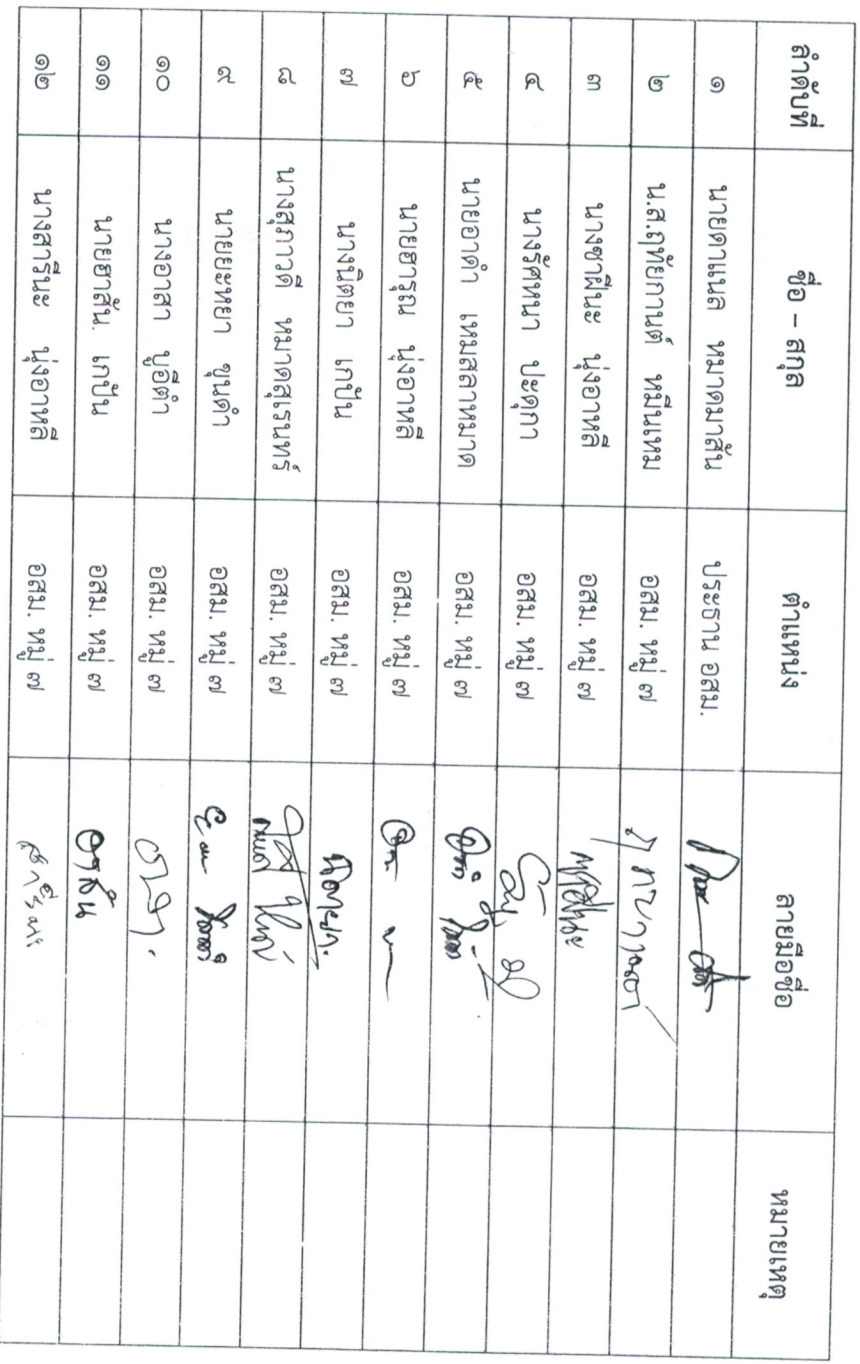 ลำดับที่ ชื่อ - สกุล ตำแหน่ง ลายมือชื่อ หมายเหตุ
๑ นายดาแนล หมาดมาสัน ประธาน อสม.
๒ น.ส.ฤทัยกานต์ หมีนเหม อสม. หมู่ ๗
๓ นางซาฝีนะ นุ่งอาหลี อสม. หมู่ ๗
๔ นางรัศหนา ปะดุกา อสม. หมู่ ๗
๕ นายอาดำ เหมสลาหมาด อสม. หมู่ ๗
๖ นายฮารุณ นุ่งอาหลี อสม. หมู่ ๗
๗ นางนิตยา เกปัน อสม. หมู่ ๗ นิตยา
๘ นางสุภาวดี หมาดสุเรนทร์ อสม. หมู่ ๗
๙ นายยะหยา ขุนดำ อสม. หมู่ ๗
๑๐ นางอาสา บูอีตำ อสม. หมู่ ๗
๑๑ นายฮาสัน. เกปัน อสม. หมู่ ๗ ฮาสัน
๑๒ นางสารีนะ นุ่งอาหลี อสม. หมู่ ๗ สารีนะ